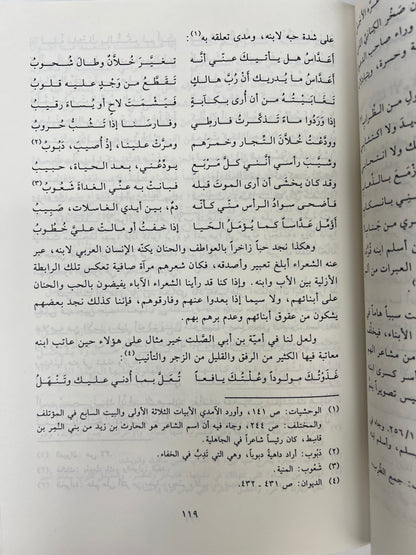 على شدة حبه لابنه، ومدى تعلقه به(١):
أعدّاسُ هل يأتيكَ عنّي أنّه تغيَّرَ خُلاَّنٌ وطالَ شُحوبُ
أعدّاسُ ما يُدريكَ أنْ رُبَّ هالكٍ تقطّعُ من وَجْدٍ عليه قلوبُ
من أن أرى بكآبةٍ فيَشْمَتَ لاحٍ أو يُساءَ رقيبُ
إذا وَرَدُوا ماءً وفارسَنا إذا حُروبُ
وودَّعتُ خُلاَّنَ التِّجارِ وخمرَهم ومرَّتْ علينا، إذْ أُصيبَ، دَبُوبُ(٢)
وشيَّبَ رأسي أنّني كلَّ مَرْبَعٍ يودِّعُني، بعدَ الحياةِ، حبيبُ
وقد كان يخشى أن أرى الموتَ قبله فبانتْ به عنّي الغداةَ شَعُوبُ(٣)
فأضحى سوادُ الرأسِ منّي كأنّه دمٌ، بين أيدي الغاسلات، صَبِيبُ
أؤمِّل عَدَّاساً كما يُؤمَلُ الحيا إذا خفتُ أو مالتْ عليَّ خُطُوبُ
وهكذا نجد حباً زاخراً بالعواطف والحنان يكنّه الإنسان العربي لابنه، عبر
عنه الشعراء أبلغ تعبير وأصدقه، فكان شعرهم مرآة صافية تعكس تلك الرابطة
الأزلية بين الأب وابنه. وإذا كنا قد رأينا الشعراء الآباء يفيضون بالحب والحنان
على أبنائهم، ولا سيما إذا بعدوا عنهم وفارقوهم، فإننا كذلك نجد بعضهم
يشكون من عقوق أبنائهم وعدم برهم بهم.
ولعل لنا في أمية بن أبي الصّلت خير مثال على هؤلاء حين عاتب ابنه
معاتبة فيها الكثير من الرفق والقليل من الزجر والتأنيب(٤):
غَذَوْتُكَ مولوداً وعُلْتُكَ يافعاً تُعَلُّ بما أُدني عليكَ وتَنْهَلُ
(١) الوحشيات: ص ١٤١، وأورد الآمدي الأبيات الثلاثة الأولى والبيت السابع في المؤتلف
والمختلف: ص ٢٤٤، وجاء فيه أن اسم الشاعر هو الحارث بن زيد من بني النَّمِر بن
قاسِط، كان رئيساً شاعراً في الجاهلية.
(٢) دَبُوب: أراد داهيةً دبوباً، وهي التي تَدِبُّ في الخفاء.
(٣) شَعُوب: المنية.
(٤) الديوان: ص ٤٣١ ـ ٤٣٢.
١١٩